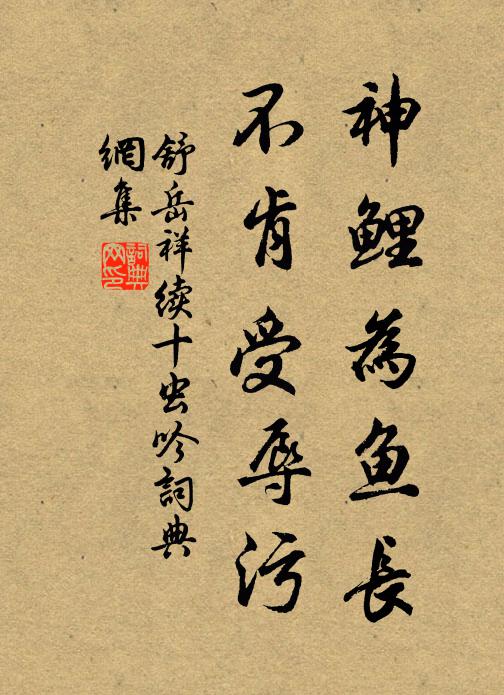 神鲤為鱼長
不肯受辱污
舒岳祥续十虫吟詞典
網集
詞典网印